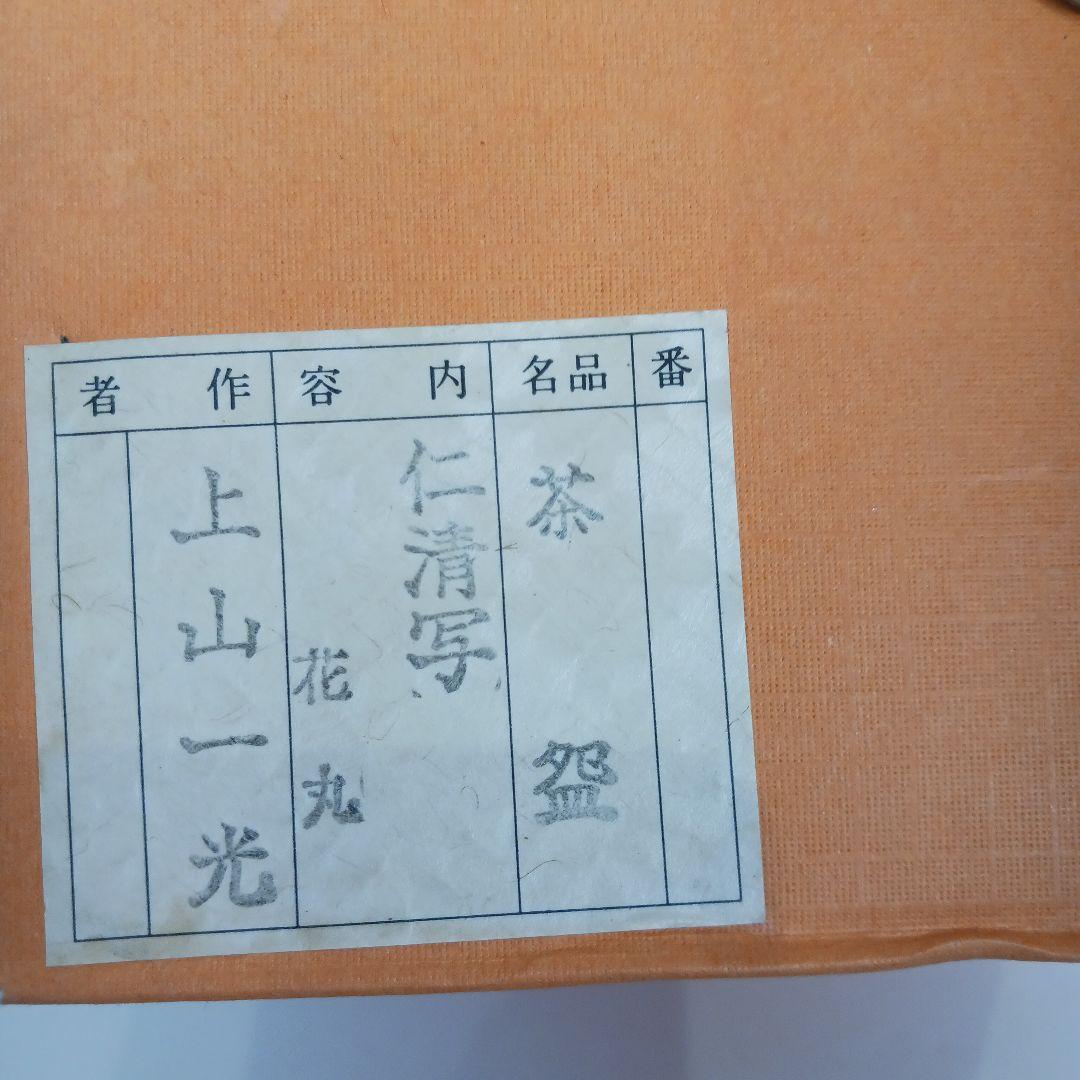 番
品名
茶盌
内容
仁清写
花丸
作者
上山一光